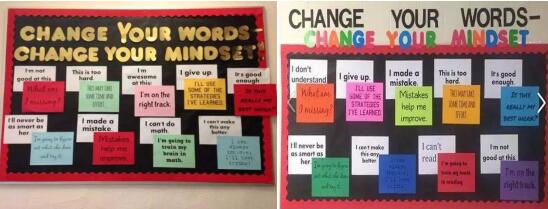 CHANGE YOUR WORDS-
CHANGE YOUR MINDSET!
I'm not
good at this
This is too
hard.
I'm
awesome at
this
I give up.
It's good
enough.
What am
I missing?
THIS MAY TAKE
SOME TIME AND
EFFORT.
I'm on the
right track.
I'LL USE
SOME OF THE
STRATEGIES
I'VE LEARNED.
IS THIS
REALLY MY
BEST WORK?
I'll never be
as smart as
her.
I made a
mistake.
I can't do
math.
I can't make this
any better.
I'm going to figure
out what she does
and try it.
Mistakes
help me
improve.
I'm going to
train my
brain in
math.
I can
always
improve;
I'll keep
trying!
CHANGE YOUR WORDS-
CHANGE YOUR MINDSET
I don't
understand
I give up.
I made a
mistake.
This is too
hard.
It's good
enough.
What am
I missing?
I'LL USE
SOME OF THE
STRATEGIES
I'VE LEARNED.
Mistakes
help me
improve.
THIS MAY TAKE
SOME TIME AND
EFFORT.
IS THIS
REALLY MY
BEST WORK?
I'll never be
as smart as
her.
I can't make this
any better.
I can't
read.
I'm not
good at this
I'm going to figure
out what she does
and try it.
I can
always
improve;
I'll keep
trying!
I'm going to
train my brain
in reading.
I'm on the
right track.